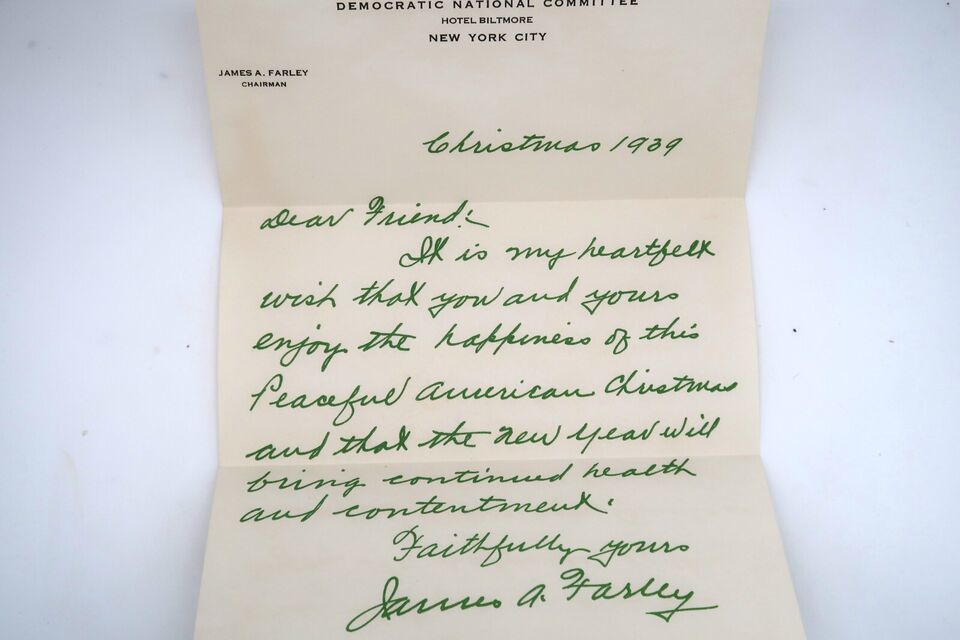 DEMOCRATIC NATIONAL COMMITTEE
HOTEL BILTMORE
NEW YORK CITY
JAMES A. FARLEY
CHAIRMAN
Christmas 1939
Dear Friend:
It is my heartfelt
wish that you and yours
enjoy the happiness of this
Peaceful American Christmas
and that the New Year will
bring continued health
and contentment.
Faithfully yours
James A. Farley